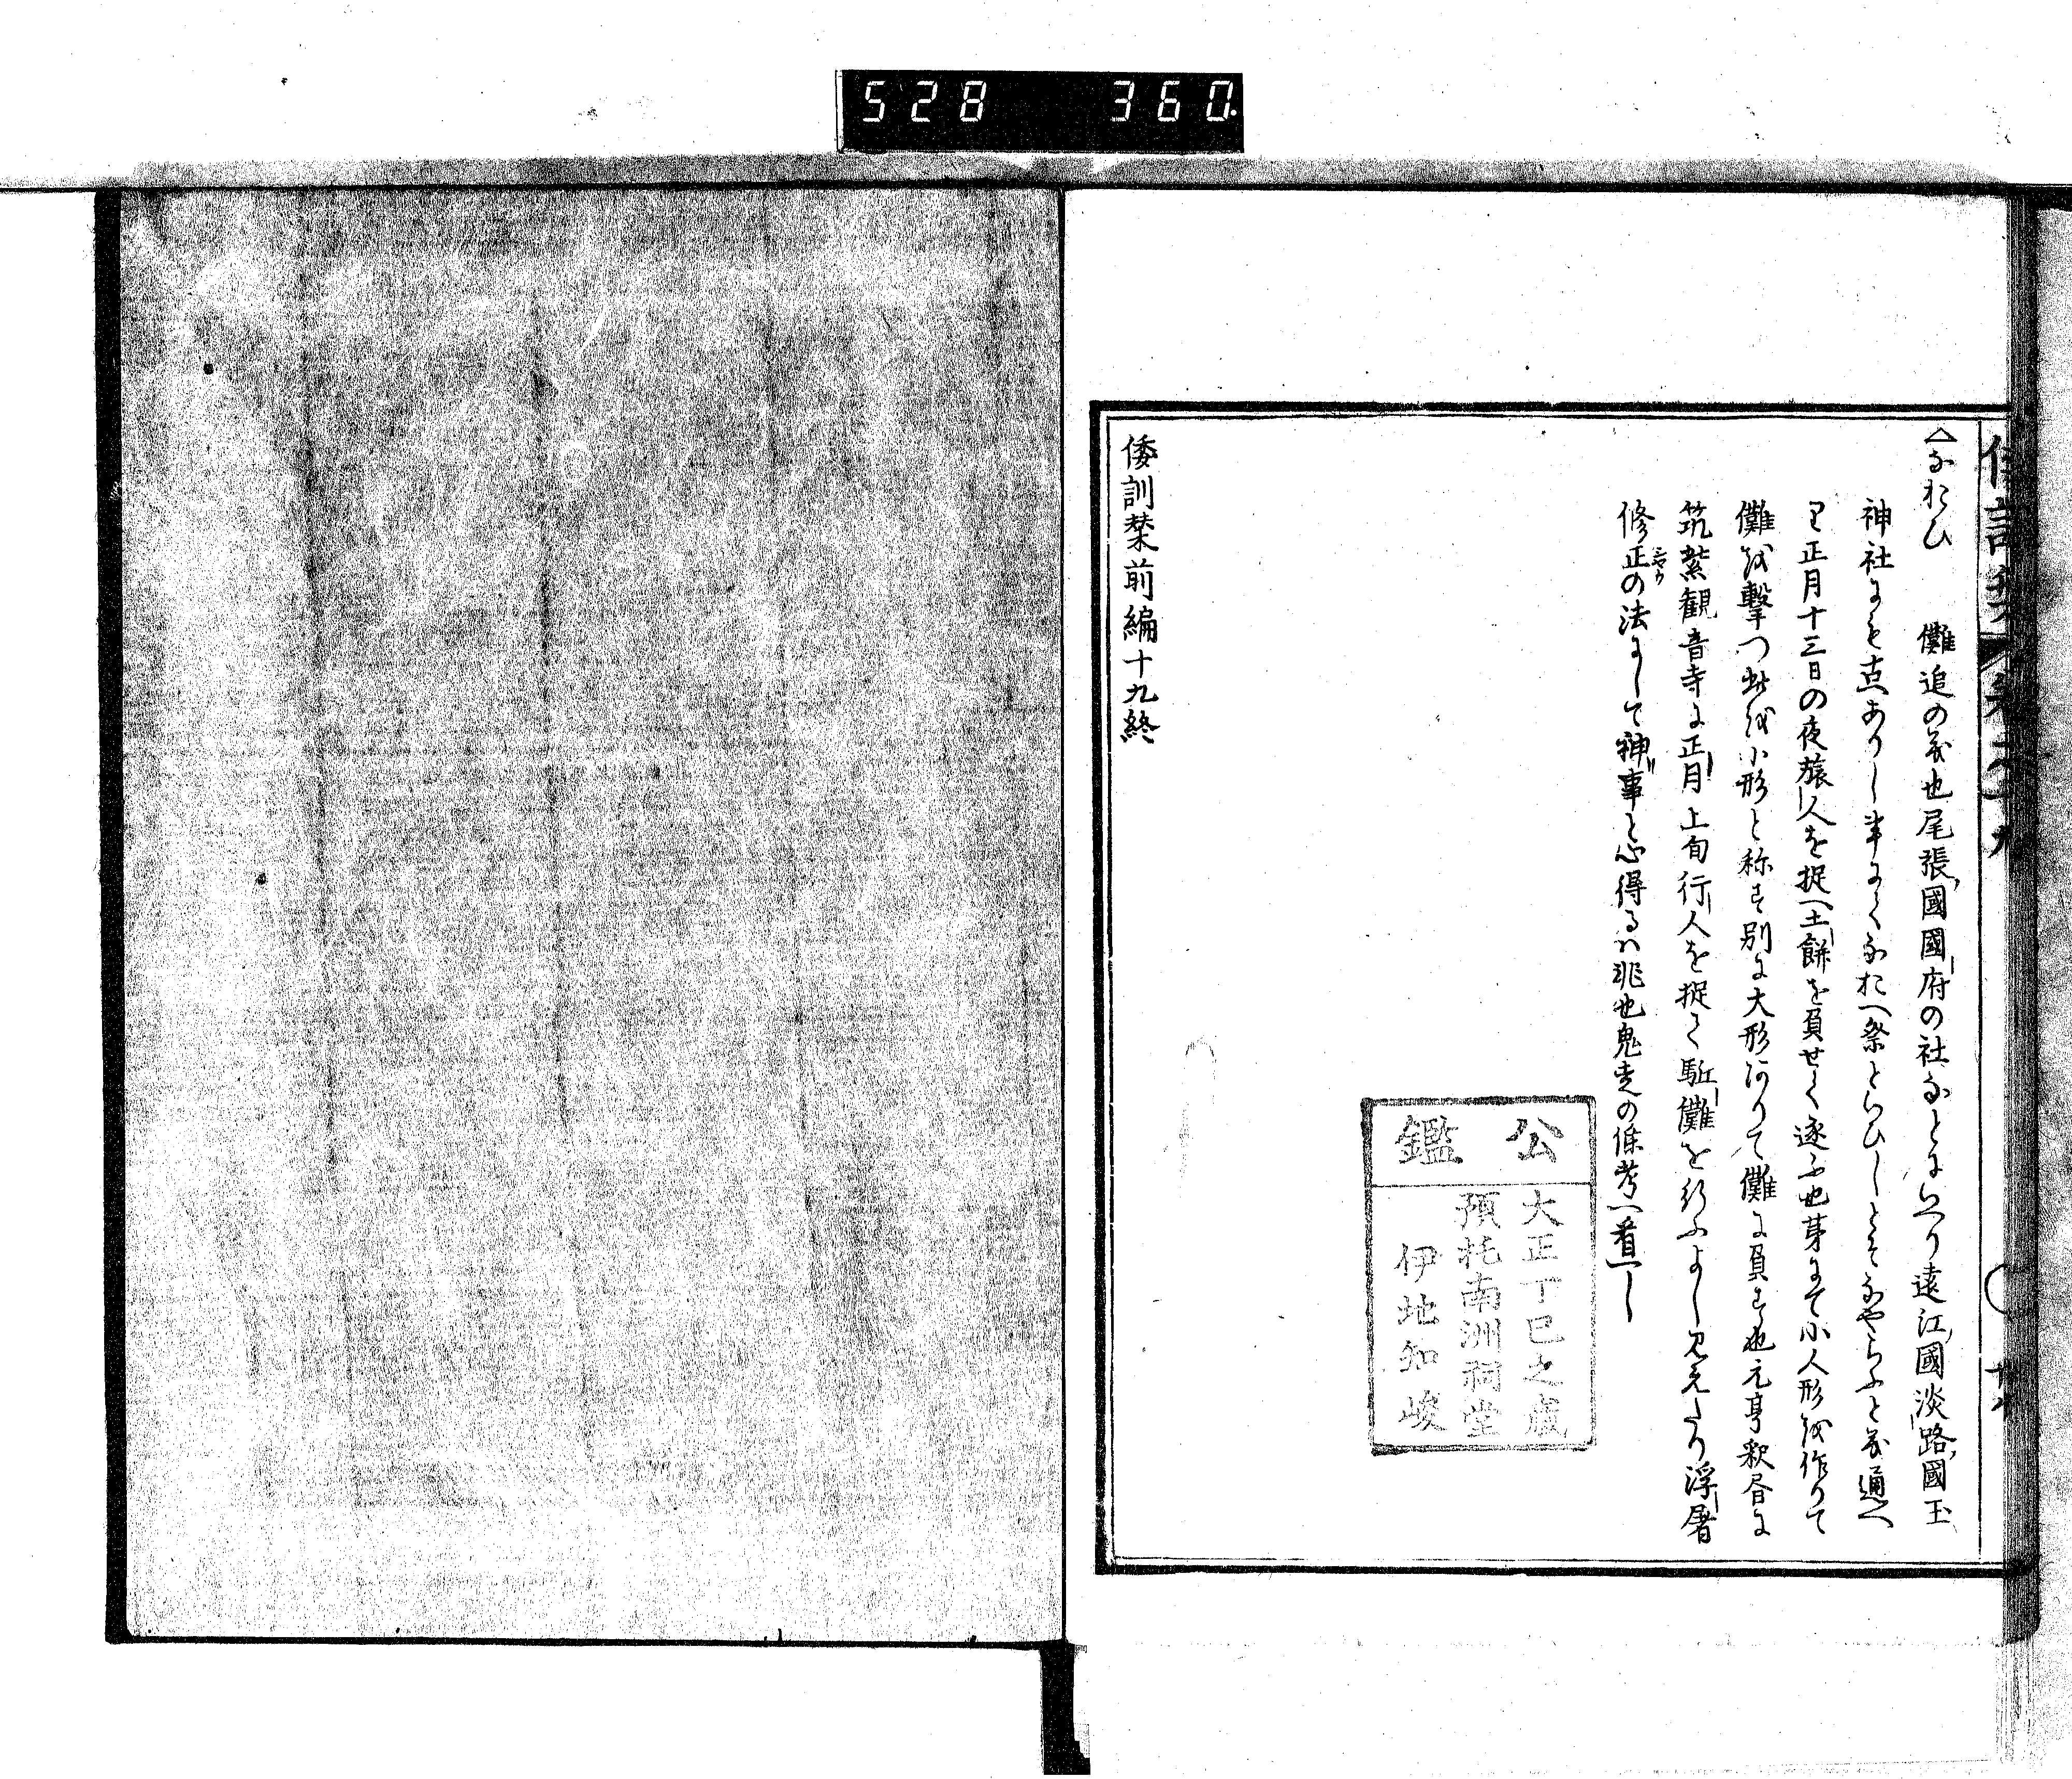 528 360
△なおひ 儺追の義也尾張國國府の社なとにいへり遠江國淡路國玉
神社にも古へありし事にてなおへ祭といひしとそなやらふと義通へ
り正月十三日の夜旅人を捉へ土餅を負せて逐ふ也茅にて小人形を作りて
儺を撃つ此を小形と称す別に大形ありて儺に負す也元亨釈書に
筑紫観音寺に正月上旬行人を捉て駈儺を行ふよし見えたり浮屠
修正の法にして神事と心得るハ非也鬼走の條考へ看へし
倭訓栞前編十九終
公鑑
大正丁巳之歳
預托南洲祠堂
伊地知峻